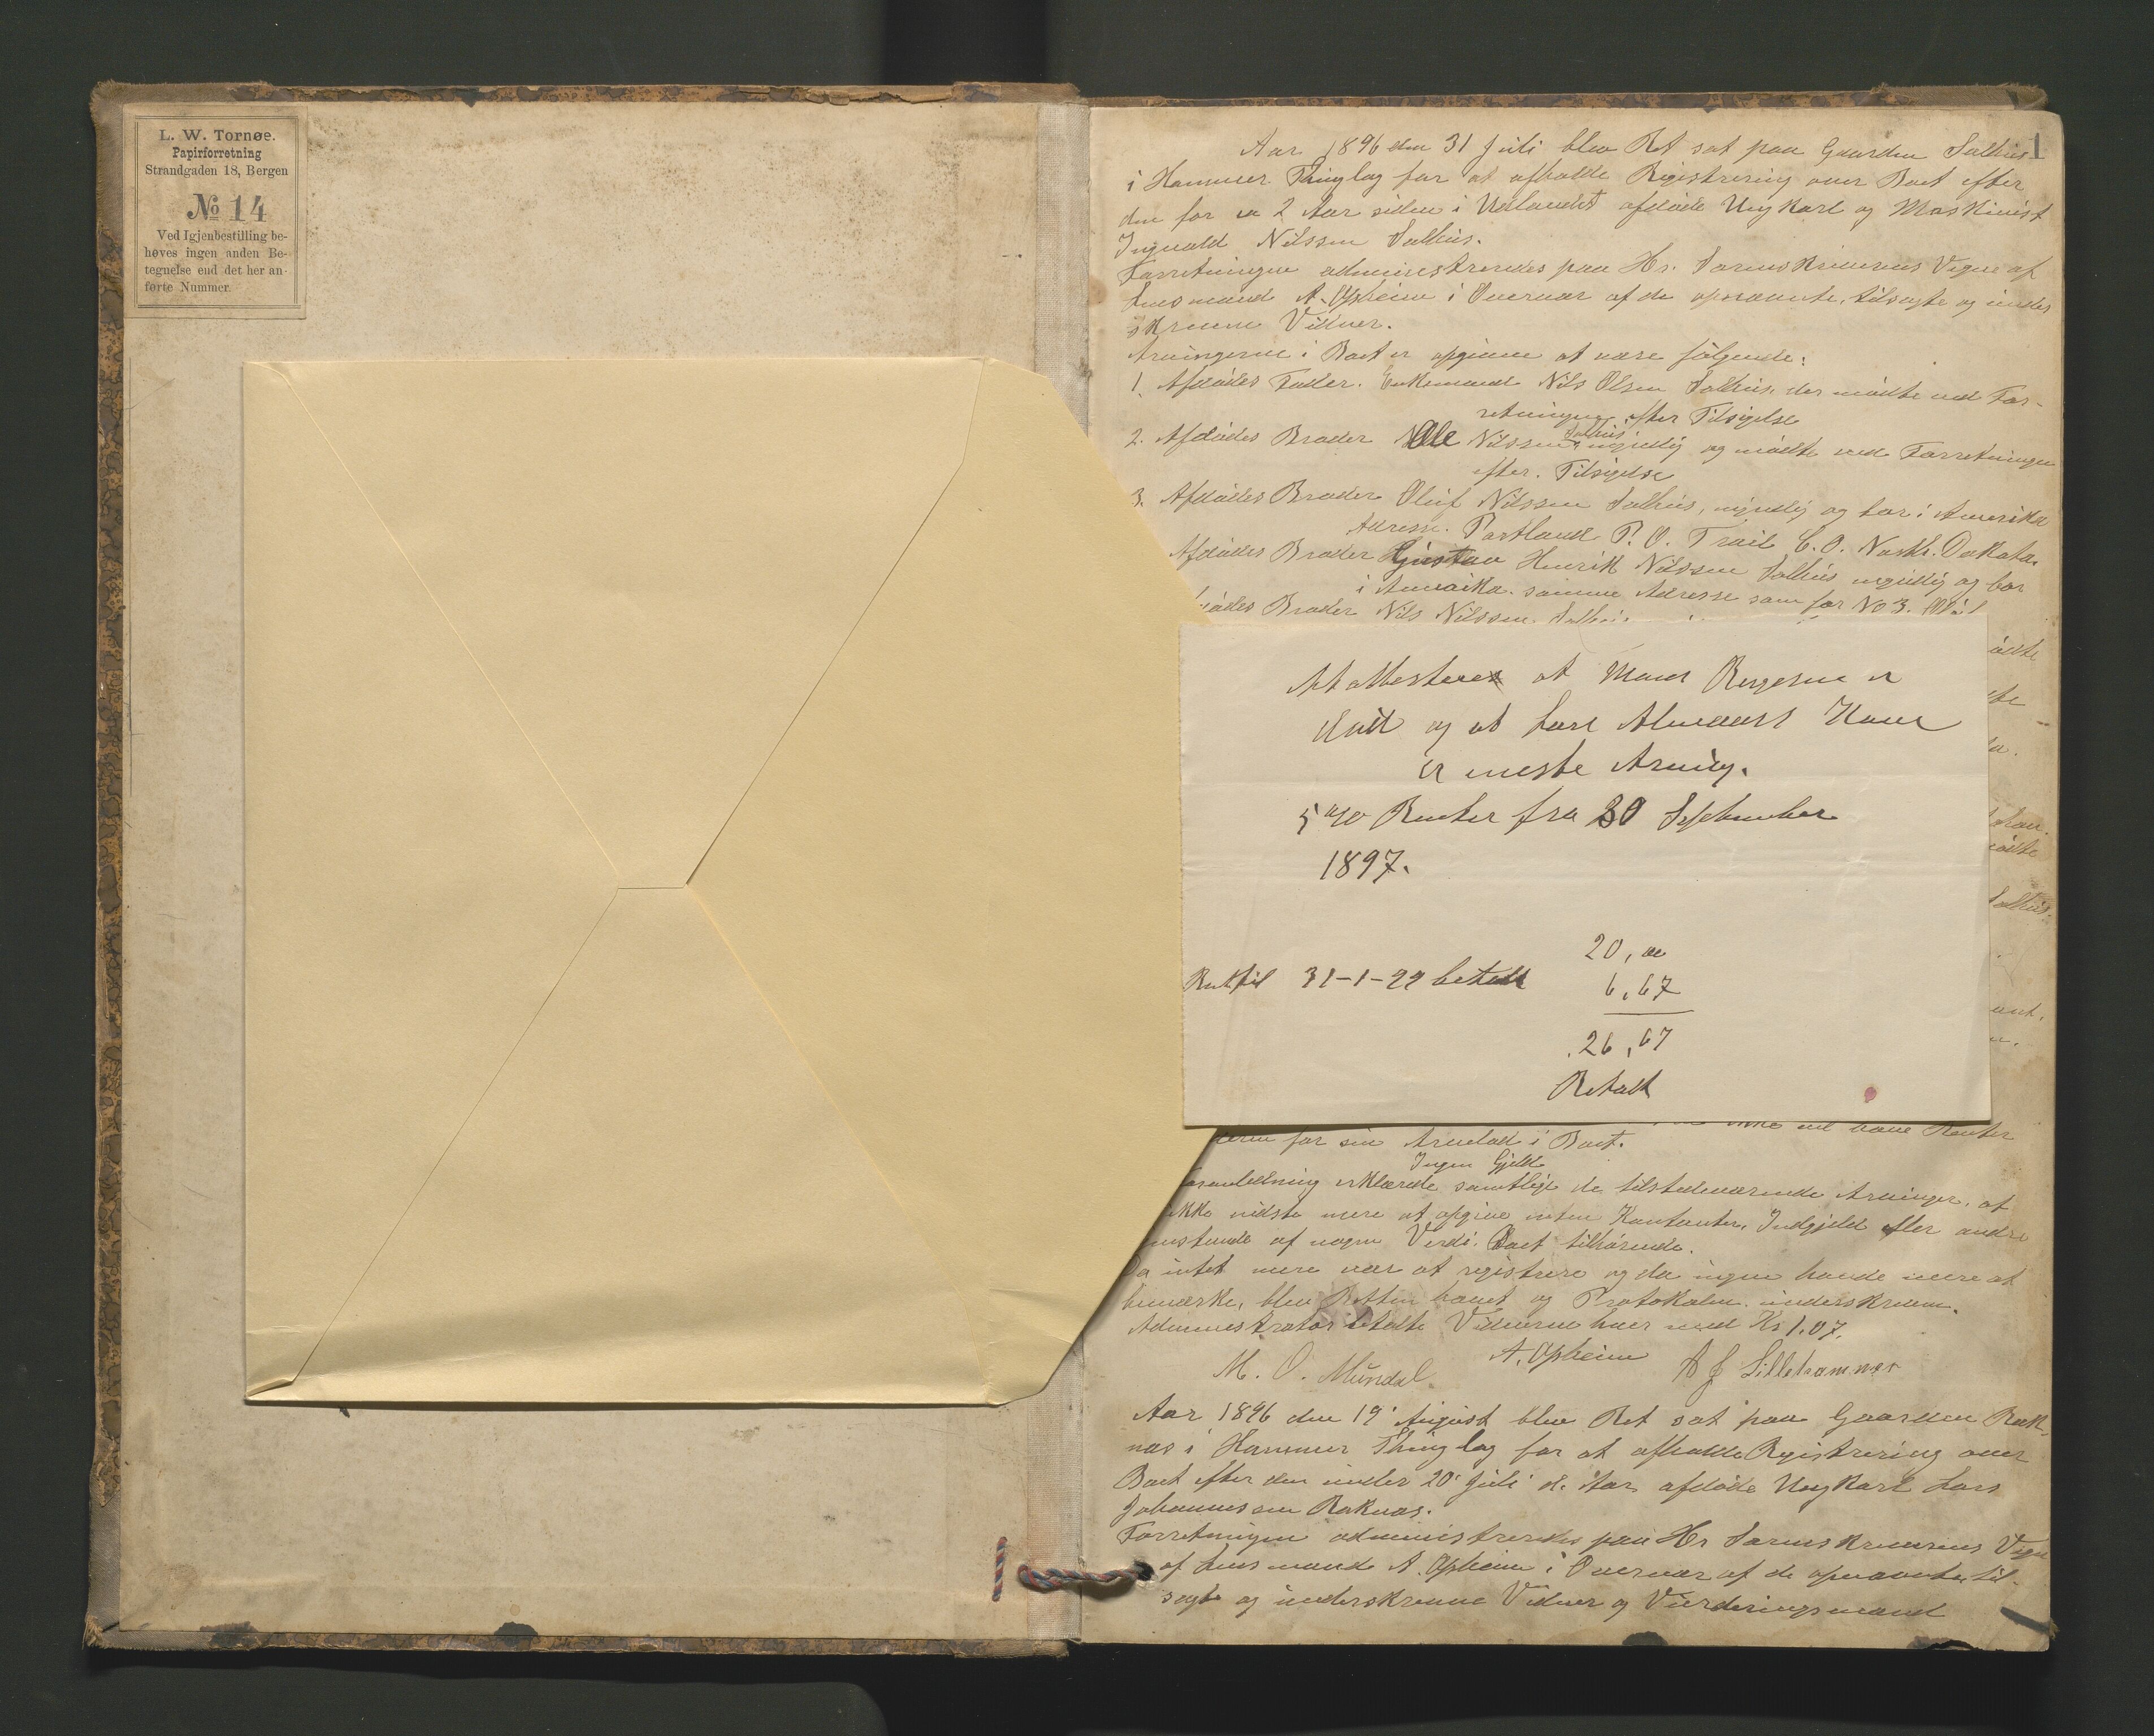 L. W. Tornøe.
Papirforretning
Strandgaden 18, Bergen
No 14
Ved Igjenbestilling be-
høves ingen anden Be-
tegnelse end det her an-
førte Nummer.
1
Aar 1896 den 31 Juli blev Ret sat paa Gaarden Salhus
i Hammer Thinglag for at afholde Registrering over Boet efter
den for ca 2 Aar siden i Udlandet afdøde Ungkarl og Maskinist
Ingvald Nilssen Salhus.
Forretningen administreredes paa Hr. Sorenskriverens Vegne af
Lensmand A. Opheim i Overvær af de opnævnte, tilsagte og under
skrevne Vidner.
Arvingerne i Boet er opgivne at være følgende:
1. Afdødes Fader. Enkemand Nils Olsen Salhus, der mødte ved For-
retningen efter Tilsigelse
2. Afdødes Broder Ole Nilssen Salhus myndig og mødte ved Forretningen
efter Tilsigelse
3. Afdødes Broder Oluf Nilssen Salhus, myndig og bor i Amerika
Adresse. Portland P. O. Trail C. O. North. Dakota.
Afdødes Broder Gustav Henrik Nilssen Salhus myndig og bor
i Amerika. samme Adresse som for No 3.
Broder Nils Nilssen Salhus
At attesteres at
død og at Lars
er neste Arving.
5 % Renter fra 30 September
1897.
20,
Rent til 31-1-99 betalt 6,67
26,67
Betalt
for sin Arvelod i Boet.
Ingen Gjeld
foranledning erklærede samtlige de tilstedeværende Arvinger, at
ikke vidste mere at opgive enten Kontanter, Indgjeld eller andre
af nogen Verdi. Boet tilhørende.
Da intet mere var at registrere og da ingen havde mere at
bemærke, blev Retten hævet og Protokolen underskreven.
Administrator betalte Vidnerne hver med Kr 1.07.
M. O. Mundal A. Opheim A J Lillehammer
Aar 1896 den 19' August blev Ret sat paa Gaarden Rak-
nes i Hammer Thinglag for at afholde Registrering over
Boet efter den under 20' Juli d. Aar afdøde Ungkarl Lars
Johannessen Raknes.
Forretningen administreredes paa Hr Sorenskriverens Vegne
af Lensmand A. Opheim i Overvær af de opnævnte til-
sagte og underskrevne Vidner og Vurderingsmænd